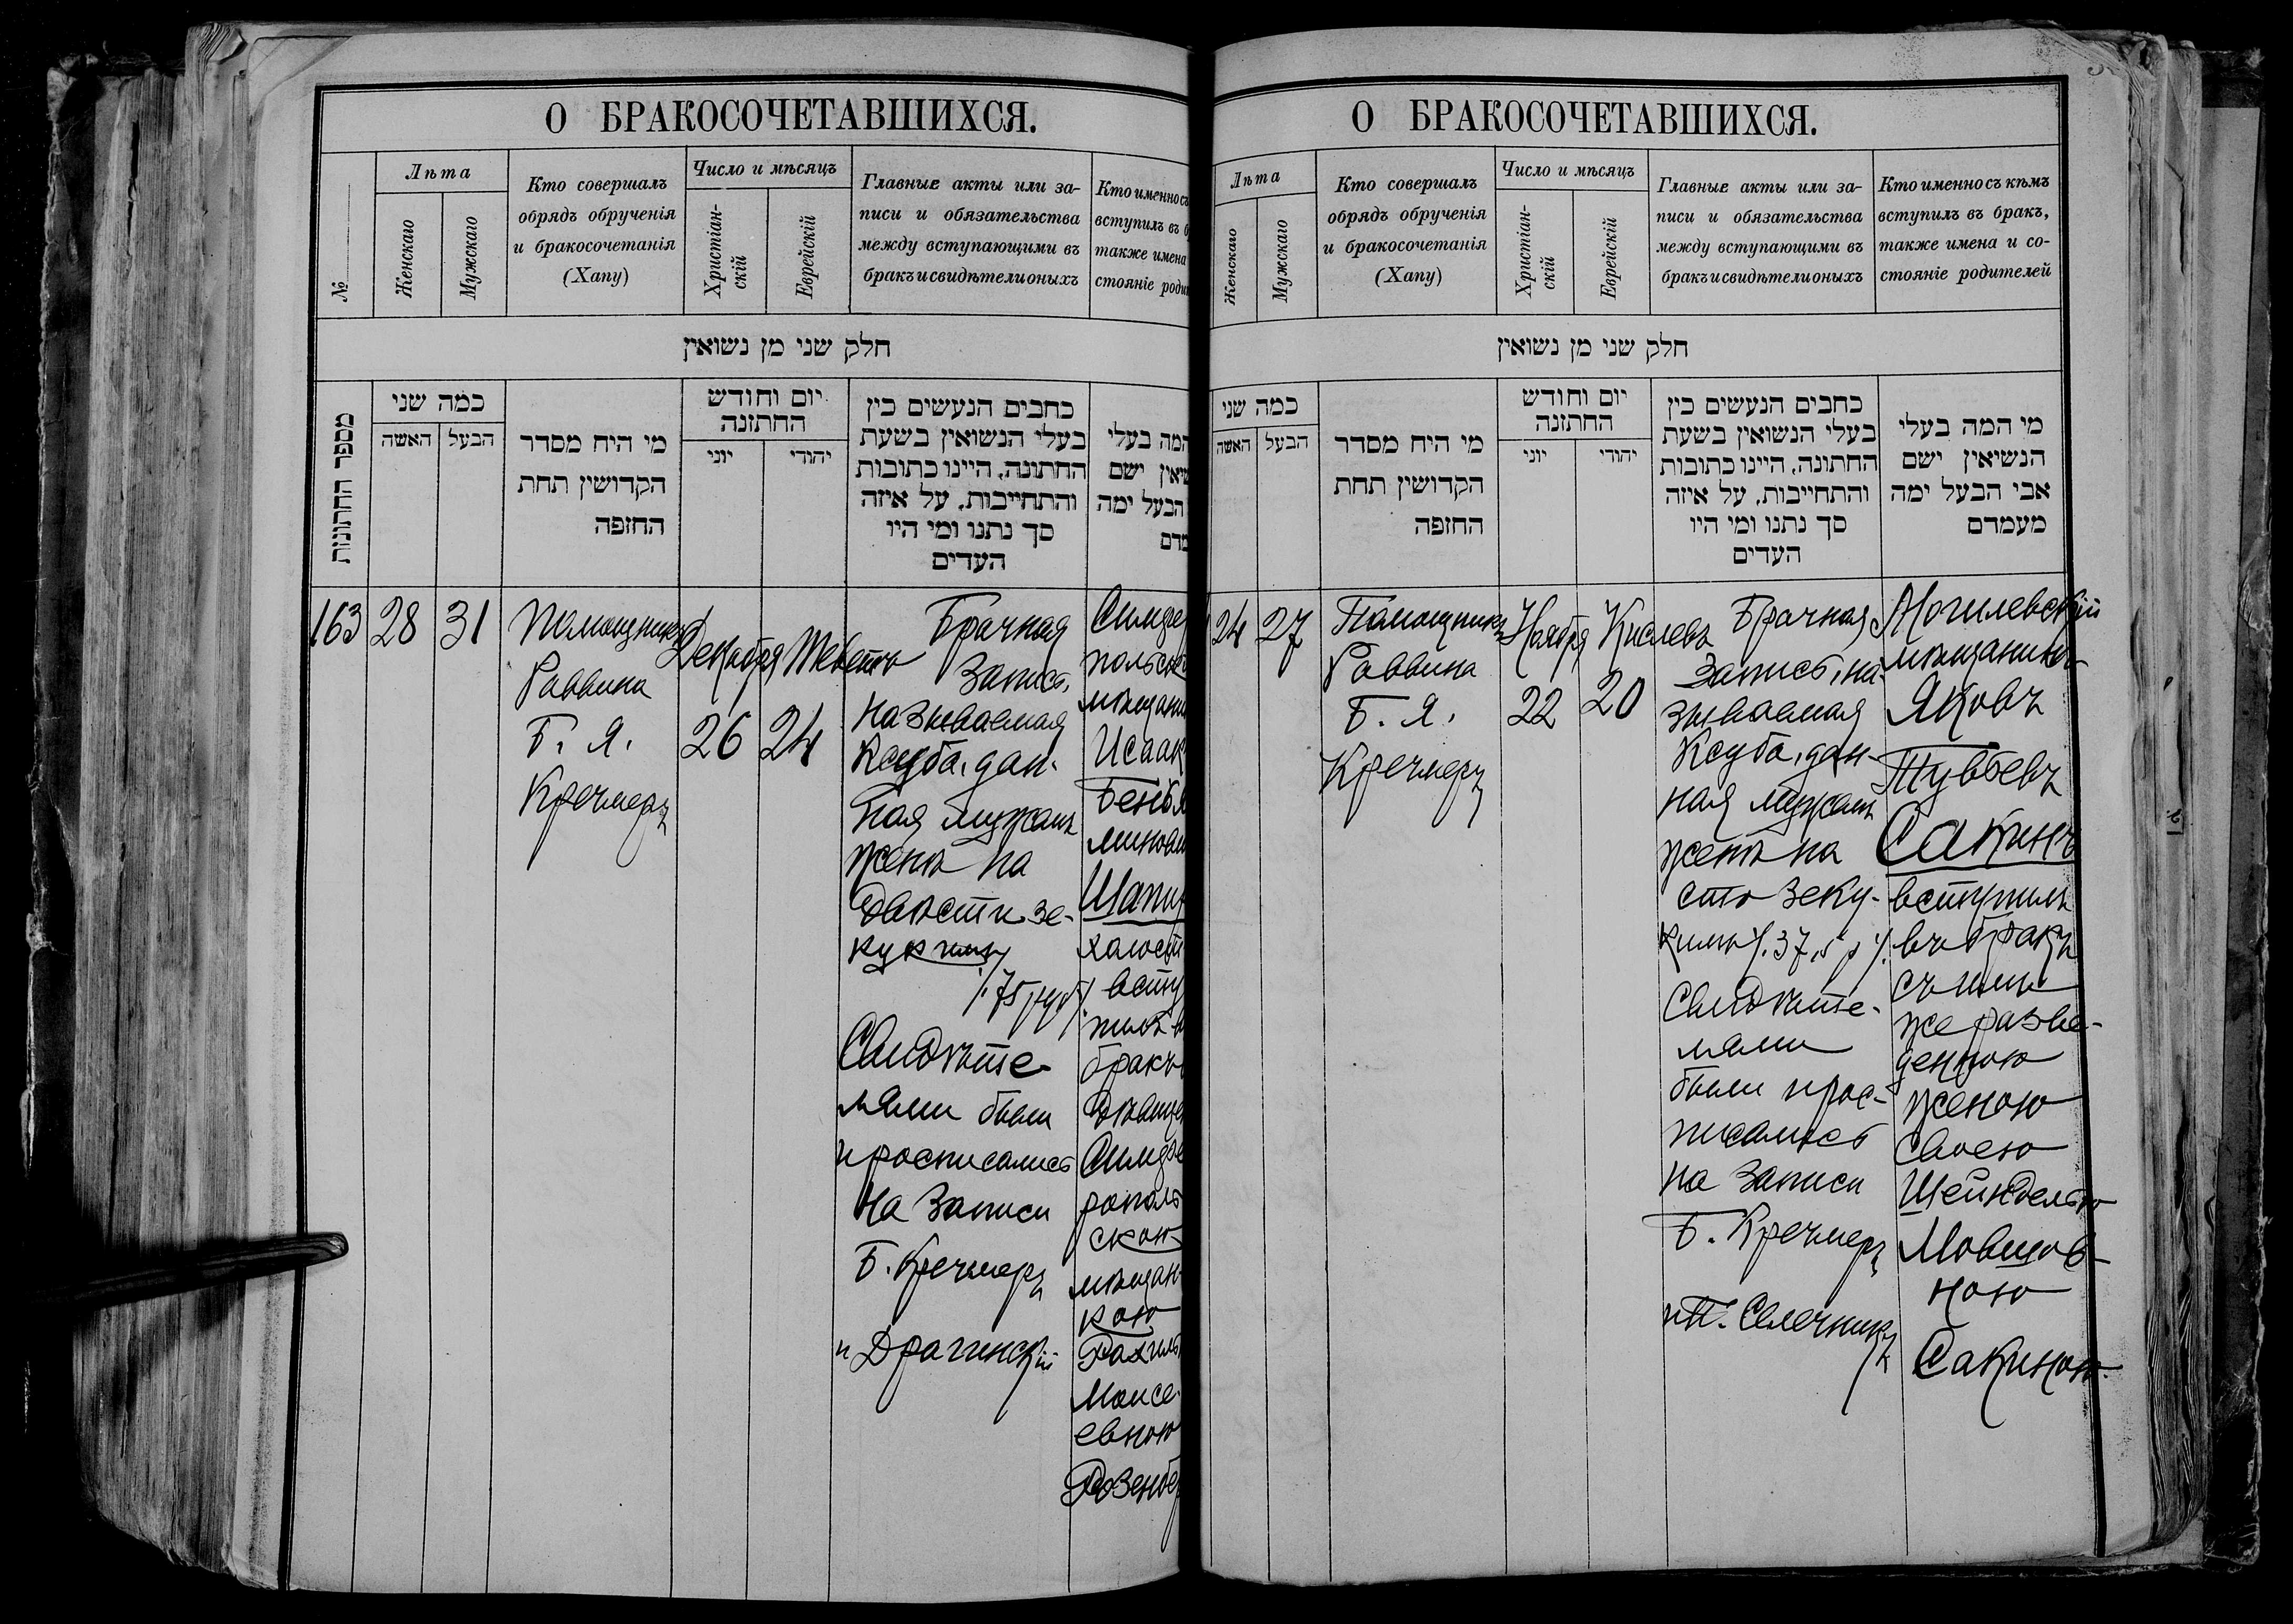 О БРАКОСОЧЕТАВШИХСЯ.
№
Лѣта
Женскаго
Мужскаго
Кто совершалъ
обрядъ обрученія
и бракосочетанія
(Хапу)
Число и мѣсяцъ
Христіан-
скій
Еврейскій
Главные акты или за-
писи и обязательства
между вступающими въ
бракъ и свидѣтели оныхъ
Кто именно съ
вступилъ въ б
также имена
стояніе роди
חלק שני מן נשואין
מספר החתונות
כמה שני
האשה
הבעל
מי היח מסדר
הקדושין תחת
החופה
יום וחודש
החתונה
יוני
יהודי
כחבים הנעשים כין
בעלי הנשואין בשעת
החתונה, היינו כתובות
והתחייבות, על איזה
סך נתנו ומי היו
העדים
המה בעלי
שיאין ישם
הבעל ימה
מדם
163
28
31
Помощникъ
Раввина
Б. Я.
Кречмеръ
Декабря
26
Тебетъ
24
Брачная
Запись,
называемая
Ксуба, дан-
ная мужемъ
женѣ на
двѣсти зе-
кукимъ
/.75 руб/.
Свидѣте-
лями были
и росписались
на записи
Б. Кречмеръ
и Драгинскій
Симфер
польскі
мѣщани
Исаак
Беньа
минови
Шапир
холост
всту
пилъ в
бракъ
дѣвице
Симфе
рополь
скою
мѣщан-
кою
Рахиль
Моисе-
евною
Розенбер
О БРАКОСОЧЕТАВШИХСЯ.
Лѣта
Женскаго
Мужскаго
Кто совершалъ
обрядъ обрученія
и бракосочетанія
(Хапу)
Число и мѣсяцъ
Христіан-
скій
Еврейскій
Главные акты или за-
писи и обязательства
между вступающими въ
бракъ и свидѣтели оныхъ
Кто именно съ кѣмъ
вступилъ въ бракъ,
также имена и со-
стояніе родителей
חלק שני מן נשואין
כמה שני
האשה
הבעל
מי היח מסדר
הקדושין תחת
החופה
יום וחודש
החתונה
יוני
יהודי
כחבים הנעשים כין
בעלי הנשואין בשעת
החתונה, היינו כתובות
והתחייבות, על איזה
סך נתנו ומי היו
העדים
מי המה בעלי
הנשיאין ישם
אבי הבעל ימה
מעמדם
24
27
Помощникъ
Раввина
Б. Я.
Кречмеръ
Ноября
22
Кислевъ
20
Брачная
Запись, на-
зываемая
Ксуба, дан-
ная мужемъ
женѣ на
сто зеку-
кимъ /.37,5 р/.
Свидѣте-
лями
были и рос-
писались
на записи
Б. Кречмеръ
и Т. Свечникъ
Могилевскій
мѣщанинъ
Яковъ
Тувьевъ
Сакинъ
вступилъ
въ бракъ
съ
же разве-
денною
женою
своею
Шейнделью
Мовшов-
ною
Сакиною.